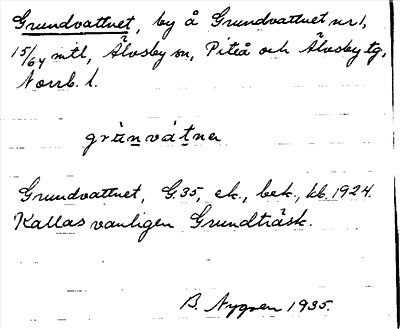 Grundvattnet, by å Grundvattnet nr 1,
15/64 mtl, Älvsby sn, Piteå och Älvsby tg,
Norrb. l.
grùnvátnẹ
Grundvattnet, G.35, ek., bek., kb. 1924.
Kallas vanligen Grundträsk.
B. Nygren 1935.